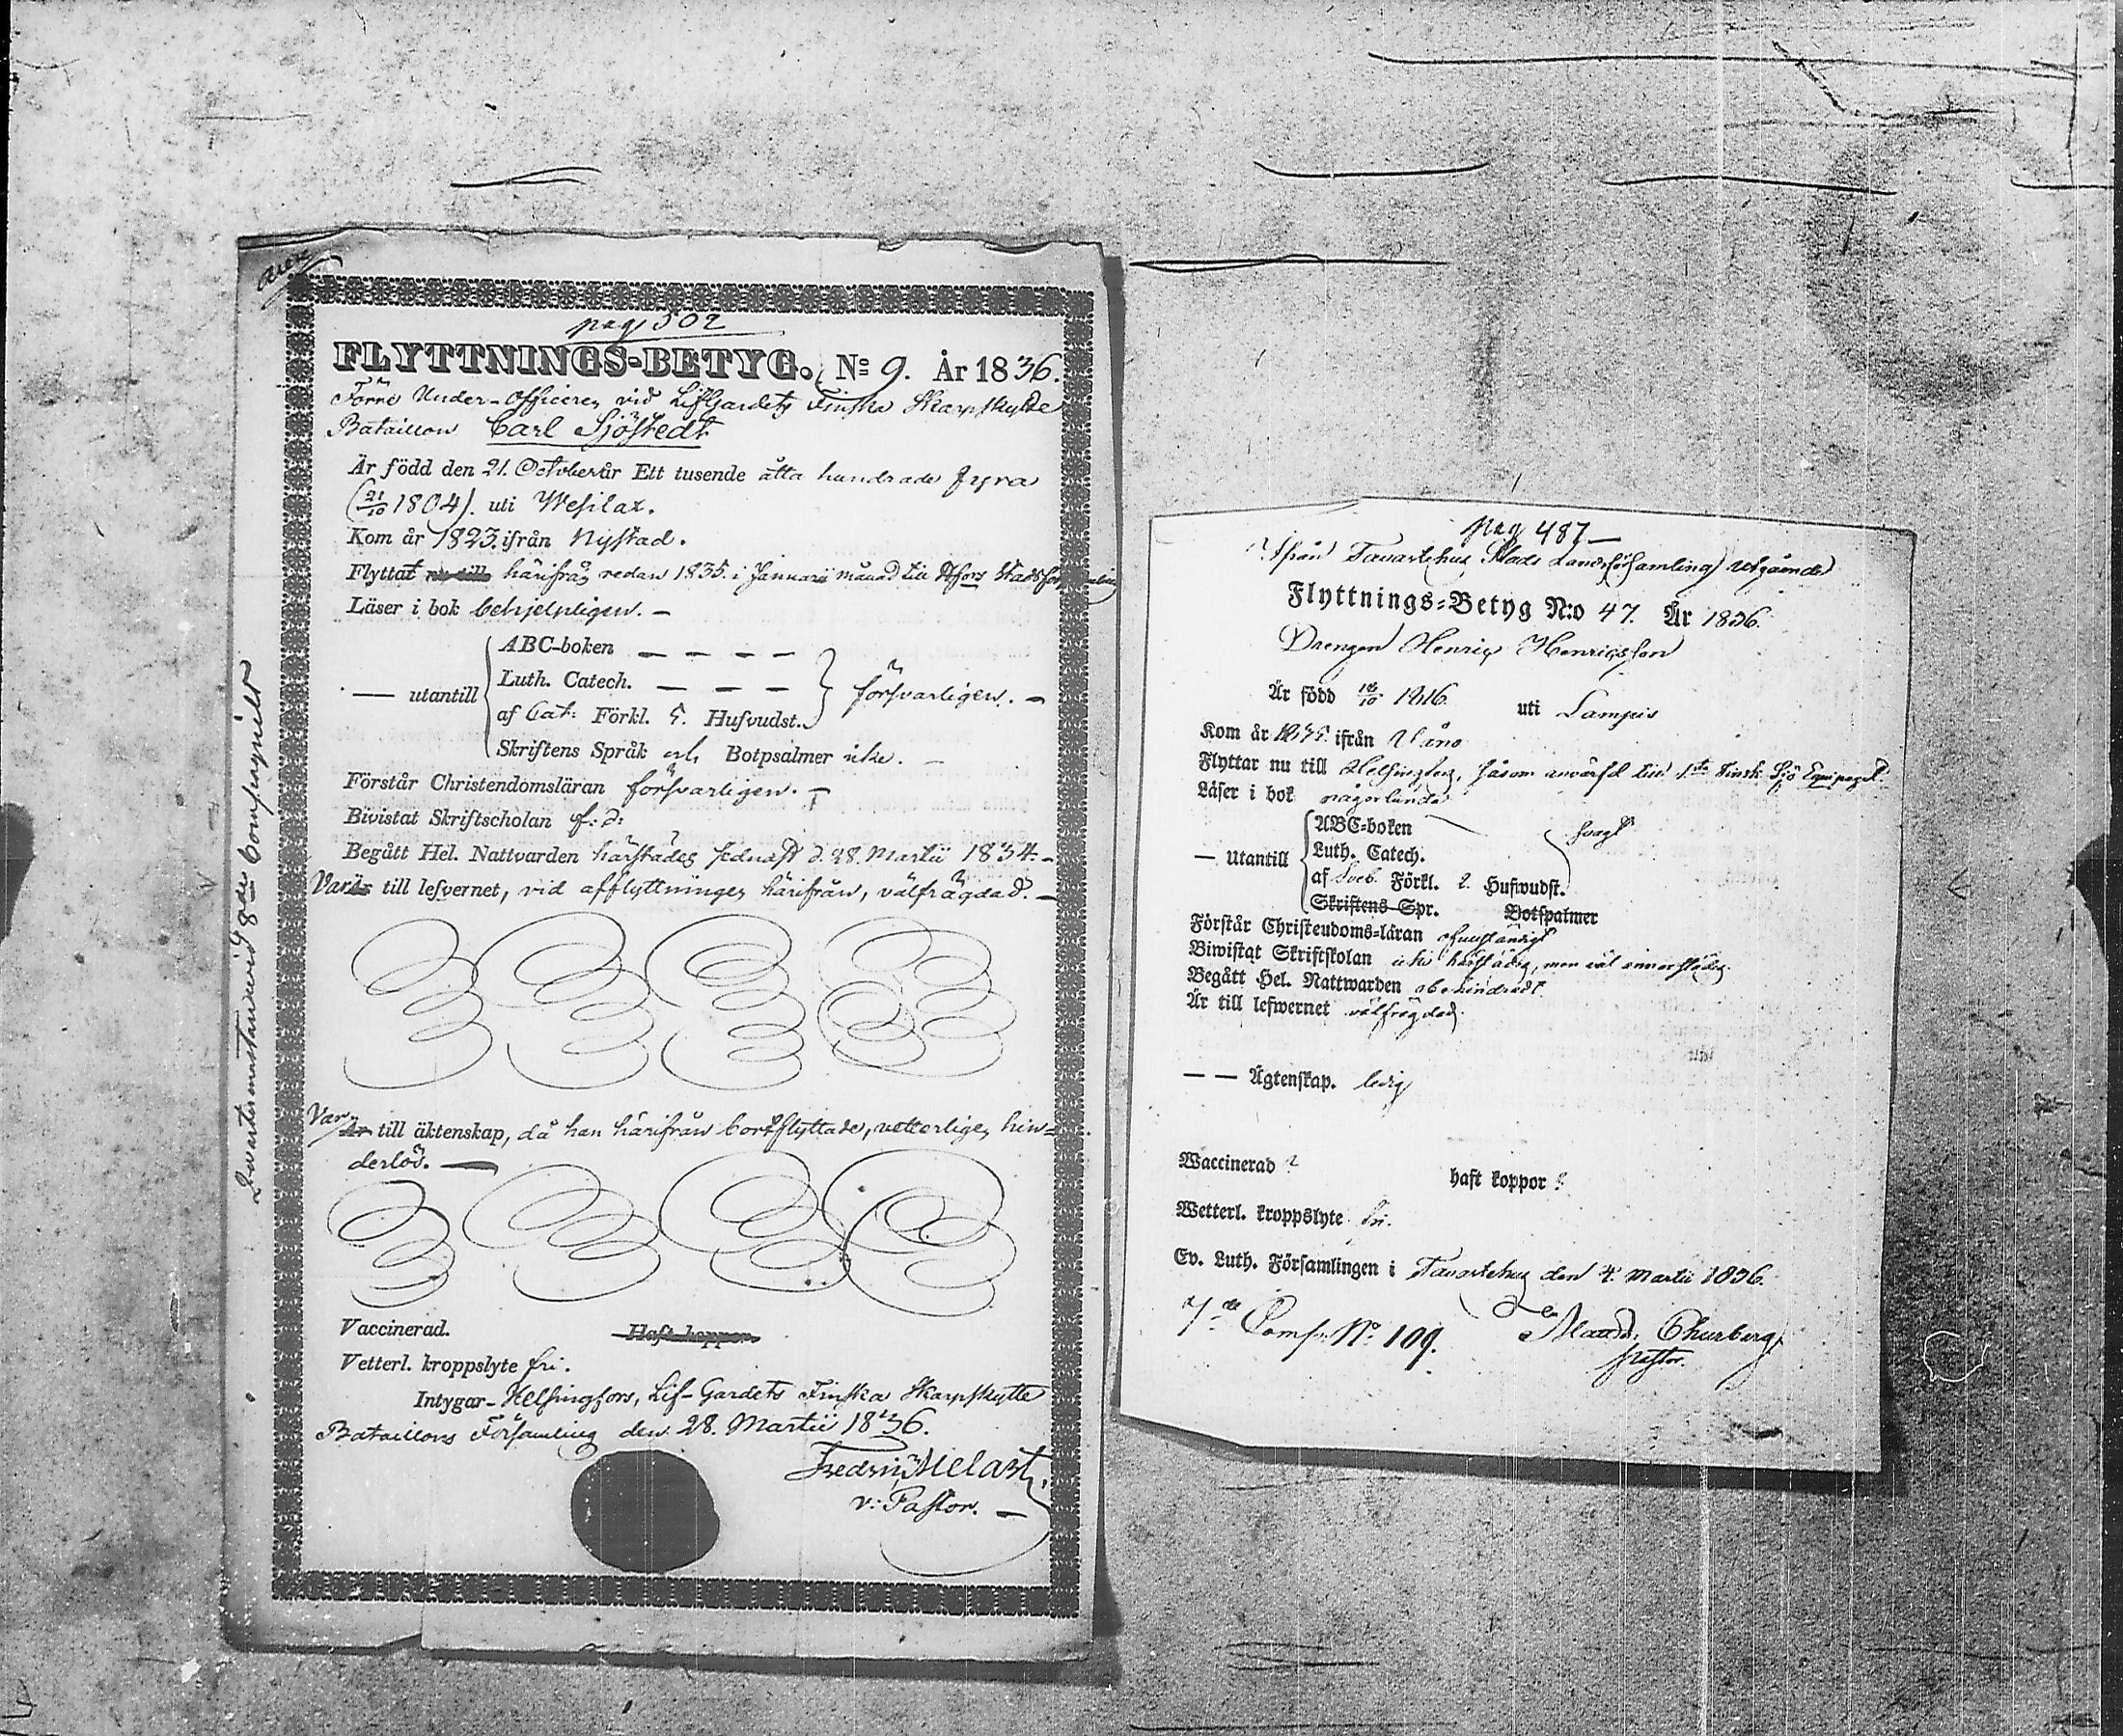 pag 502
FLYTTNINGS-BETYG. No 9. År 1836.
Förre Under-Officeren vid LifGardets Finska Skarpskytte
Bataillon Carl Sjöstedt
Är född den 21. October år Ett tusende åtta hundrade fyra
(21/10 1804). uti Wesilax.
Kom år 1823. ifrån Nystad.
Flyttat nu till härifrån redan 1835. i Januarii månad till Hfors Stadsförsamling
Läser i bok behjelpligen. —
— utantill
ABC-boken — — — —
Luth. Catech. — — —
af Cat: Förkl. 5. Hufvudst.
försvarligen. —
Skriftens Språk och Botpsalmer icke. —
Förstår Christendomsläran försvarligen. —
Bivistat Skriftscholan f: d:
Begått Hel. Nattvarden härstädes sednast d. 28. Martii 1834. —
Var till lefvernet, vid afflyttningen härifrån, välfrägdad. —
Var Är till äktenskap, då han härifrån bortflyttade, vetterligen hin=
derlös. —
Vaccinerad. Haft koppor.
Vetterl. kroppslyte fri.
Intygar Helsingfors, Lif-Gardets Finska Skarpskytte
Bataillons Församling den 28. Martii 1836.
Fredric Melart,
v: Pastor. —
Qvartermästaren vid 8de Compagniet
pag 487—
Ifrån Tavastehus Stads Landsförsamling utgående
Flyttnings-Betyg N:o 47. År 1836.
Drengen Henric Henricsson
Är född 1816. uti Lampis
Kom år 1835. ifrån Vånå
Flyttar nu till Helsingfors, såsom anvärfd till 1sta Finsk. Sjö Equipaget.
Läser i bok någorlunda
— utantill
ABC-boken
Luth. Catech.
af Sveb. Förkl. 2. Hufwudst.
svagt
Skriftens Spr. Botpsalmer
Förstår Christendoms-läran ofullständigt
Biwistat Skriftskolan icke härstädes, men väl annorstädes.
Begått Hel. Nattwarden obehindradt
Är till lefwernet välfrägdad.
— — Ägtenskap. ledig
Waccinerad ? haft koppor ?
Wetterl. kroppslyte fri.
Ev. Luth. Församlingen i Tavastehus den 4. Martii 1836.
7de Comp. No 109.
Churberg
pastor.